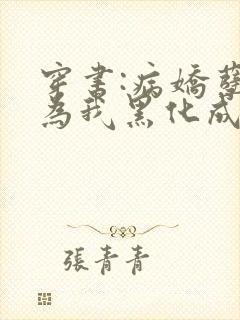 穿書:病嬌
為我黑化成
張青青